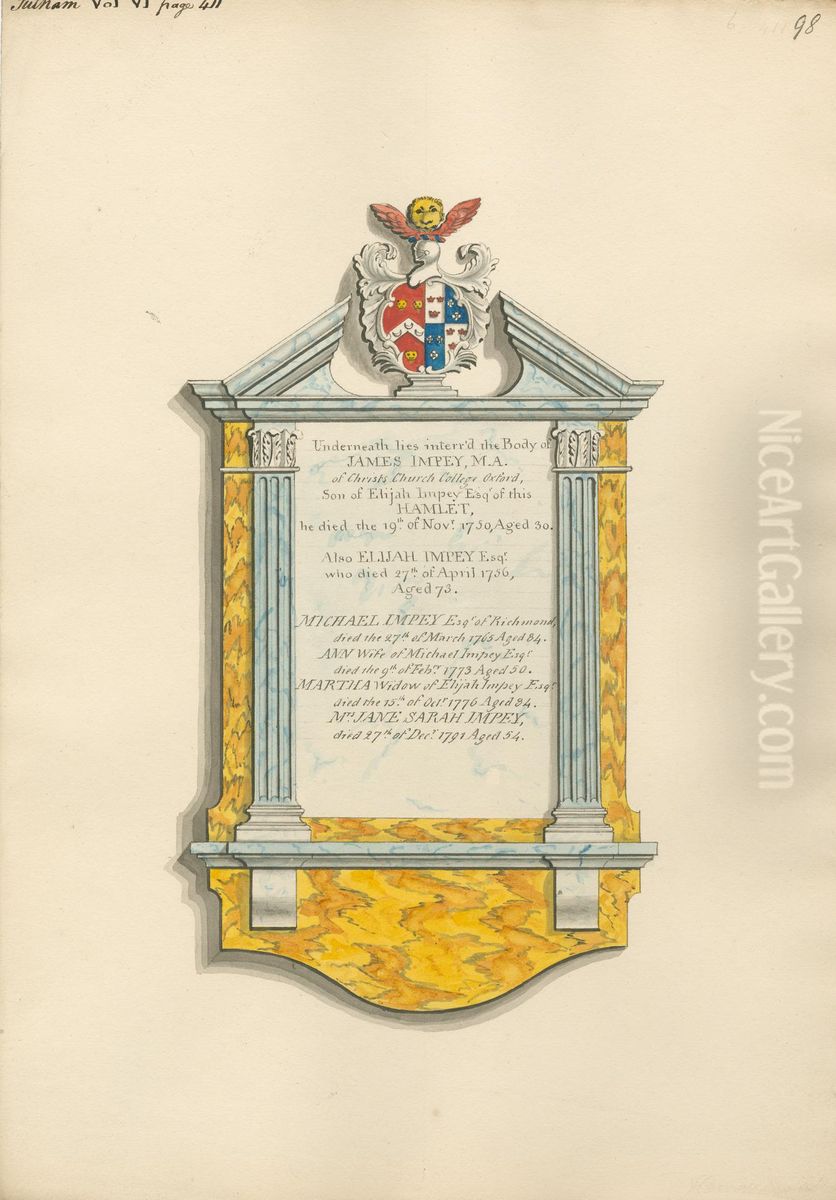 Fulham Vol VI page 411
98
Underneath lies interr'd the Body of
JAMES IMPEY, M.A.
of Christs Church College Oxford,
Son of Elijah Impey Esqr of this
HAMLET,
he died the 19th of Novr 1750, Aged 30.
Also ELIJAH IMPEY Esqr
who died 27th of April 1756,
Aged 73.
MICHAEL IMPEY Esqr of Richmond,
died the 27th of March 1765 Aged 84.
ANN Wife of Michael Impey Esqr
died the 9th of Febr 1773 Aged 50.
MARTHA Widow of Elijah Impey Esqr
died the 15th of Octr 1776 Aged 84.
Mrs JANE SARAH IMPEY,
died 27th of Decr 1791 Aged 54.
NiceArtGallery.com